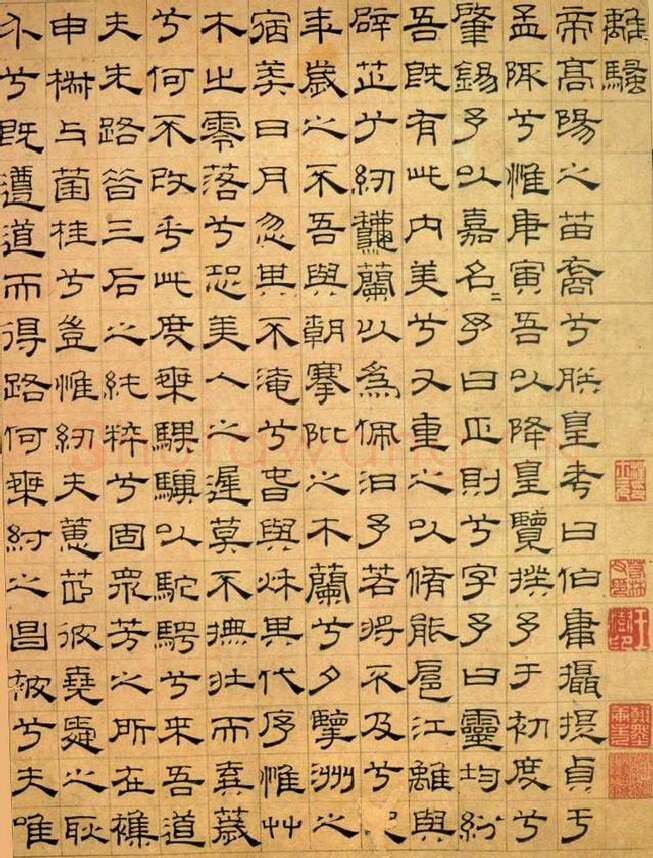 離騷
帝髙陽之苗裔兮朕皇考曰伯庸攝提貞于
孟陬兮惟庚寅吾以降皇覽揆予于初度兮
肇錫予以嘉名〻予曰正則兮字予曰靈均紛
吾既有此内美兮又重之以脩能扈江離與
辟芷兮紉龝蘭以為佩汩予若将不及兮
年歲之不吾與朝搴阰之木蘭兮夕擥洲之
宿莽日月忽其不淹兮春與秋其代序惟艸
木之零落兮恐美人之遲莫不撫壯而棄薉
兮何不改乎此度椉騏驥以駝騁兮來吾道
夫先路昔三后之純粹兮固衆芳之所在襍
申椒与菌桂兮豈惟紉夫蕙茝彼堯舜之耿
介兮既遵道而得路何桀紂之昌被兮夫唯